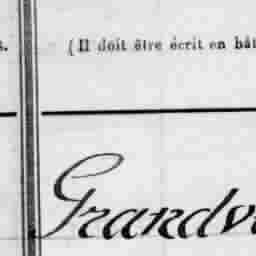 s. (Il doit être écrit en bât
Grandv